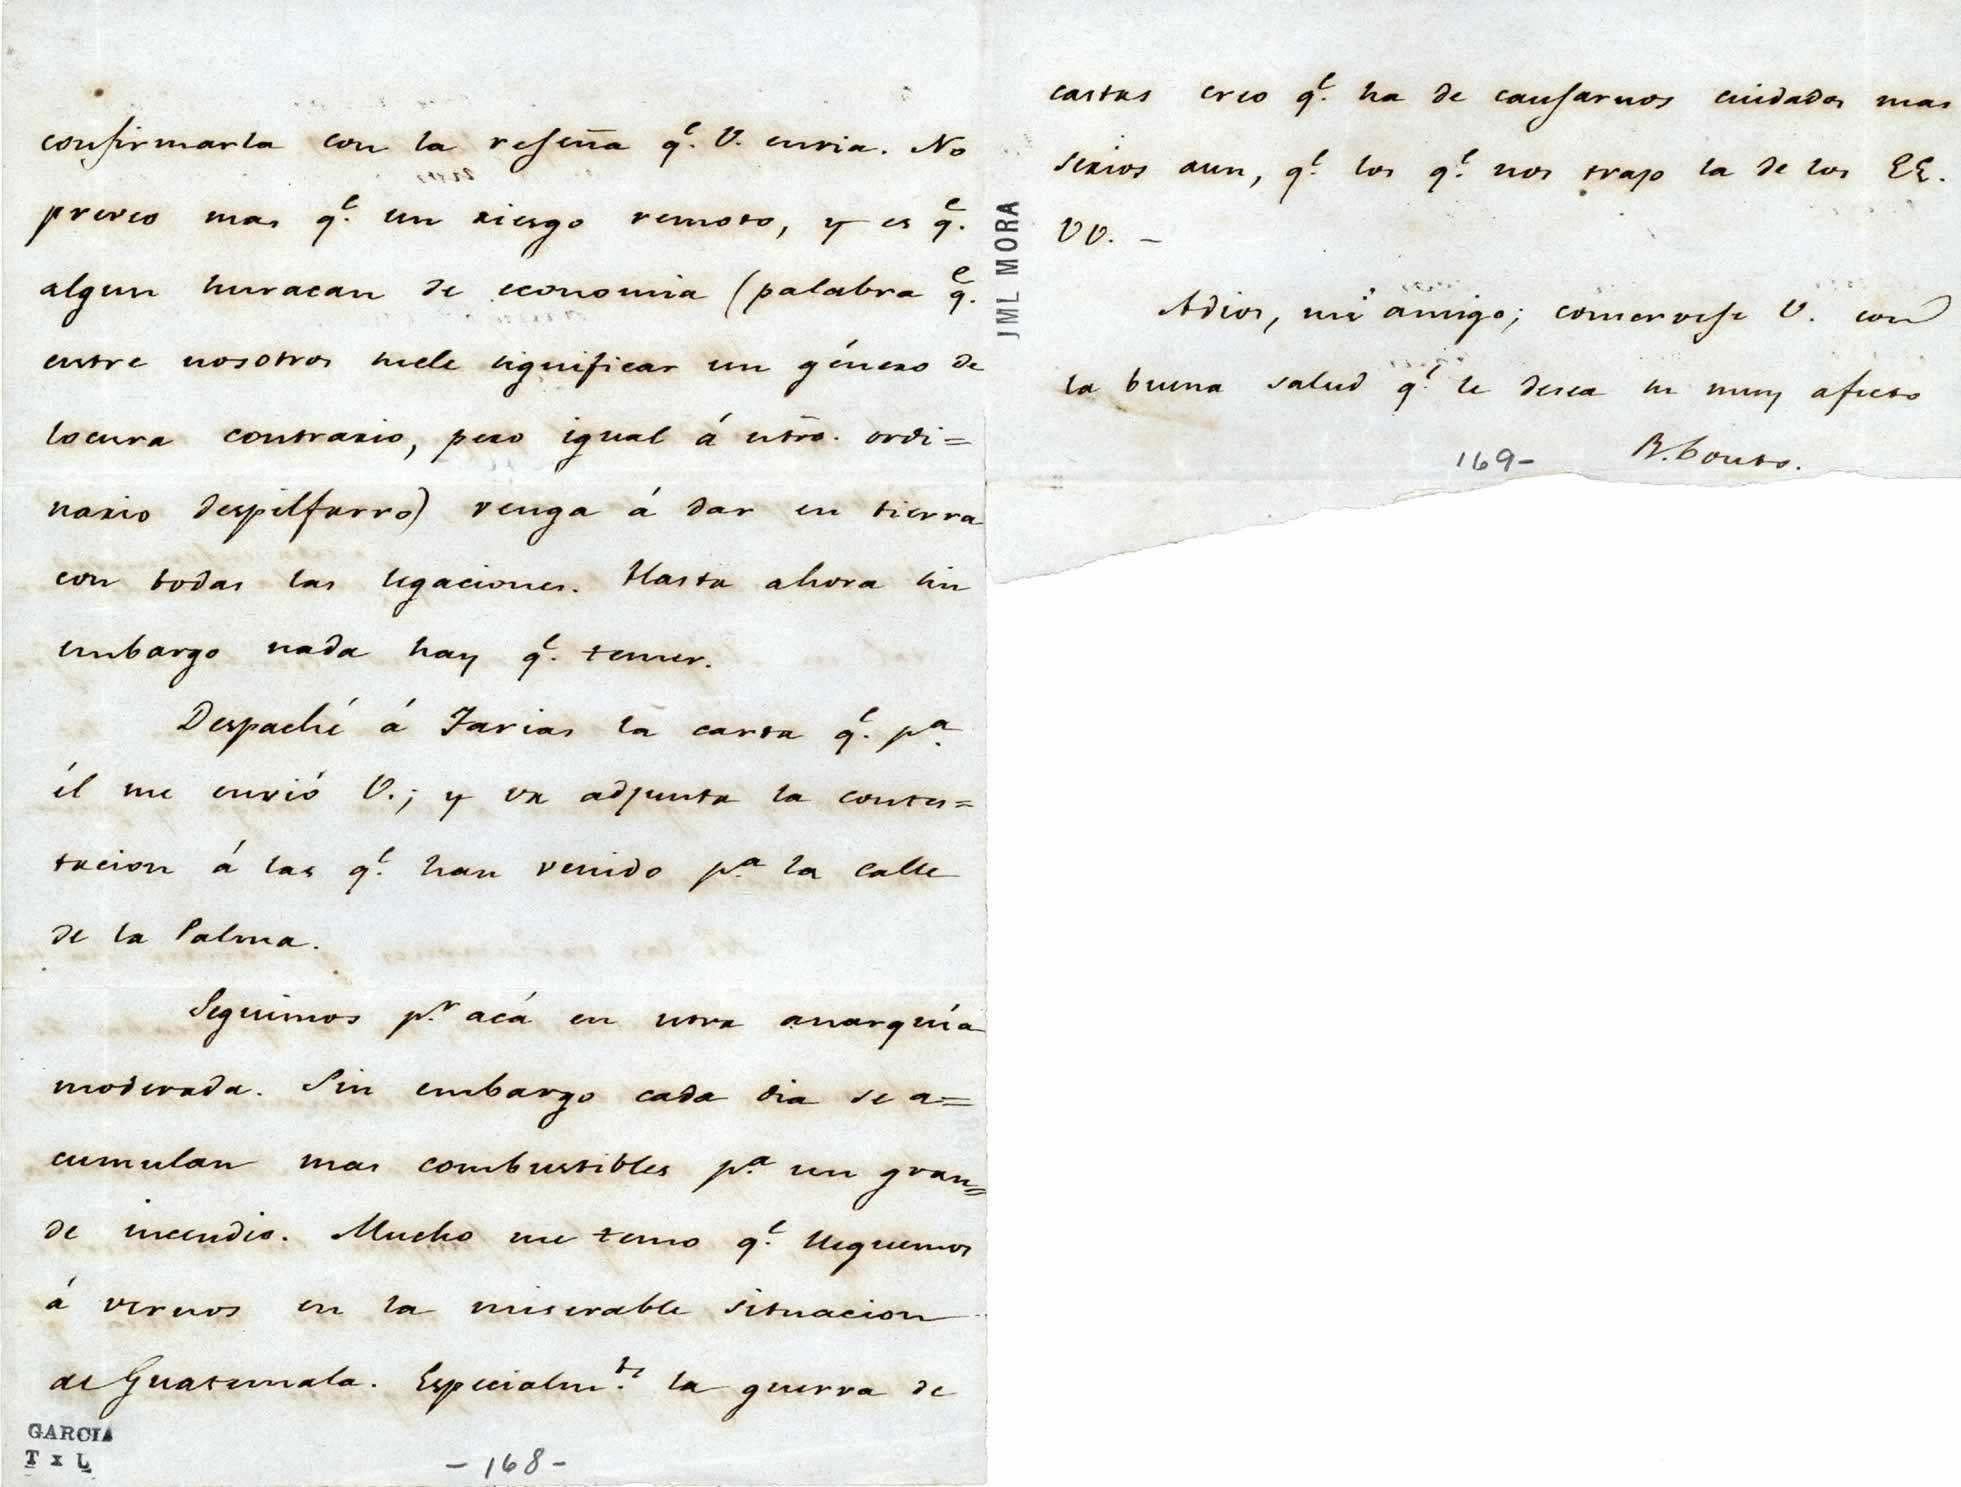 confirmarla con la reseña q.e V. envia. No
preveo mas q.e un riesgo remoto, y es q.e
algun huracan de economia (palabra q.e
entre nosotros suele significar un género de
locura contrario, pero igual á ntro. ordi=
nario despilfarro) venga á dar en tierra
con todas las legaciones. Hasta ahora sin
embargo nada hay q.e temer.
Despaché á Farias la carta q.e p.a
él me envió V.; y va adjunta la contes=
tacion á las q.e han venido p.a la calle
de la Palma.
Seguimos p.r acá en ntra anarquía
moderada. Sin embargo cada dia se a=
cumulan mas combustibles p.a un gran=
de incendio. Mucho me temo q.e lleguemos
á vernos en la miserable situacion
de Guatemala. Especialm.te la guerra de
GARCIA
T x L
-168-
JML MORA
castas creo q.e ha de causarnos cuidados mas
serios aun, q.e los q.e nos trajo la de los EE.
VV. -
Adios, mi amigo; conservese V. con
la buena salud q.e le desea su muy afecto
B. Couto.
169-